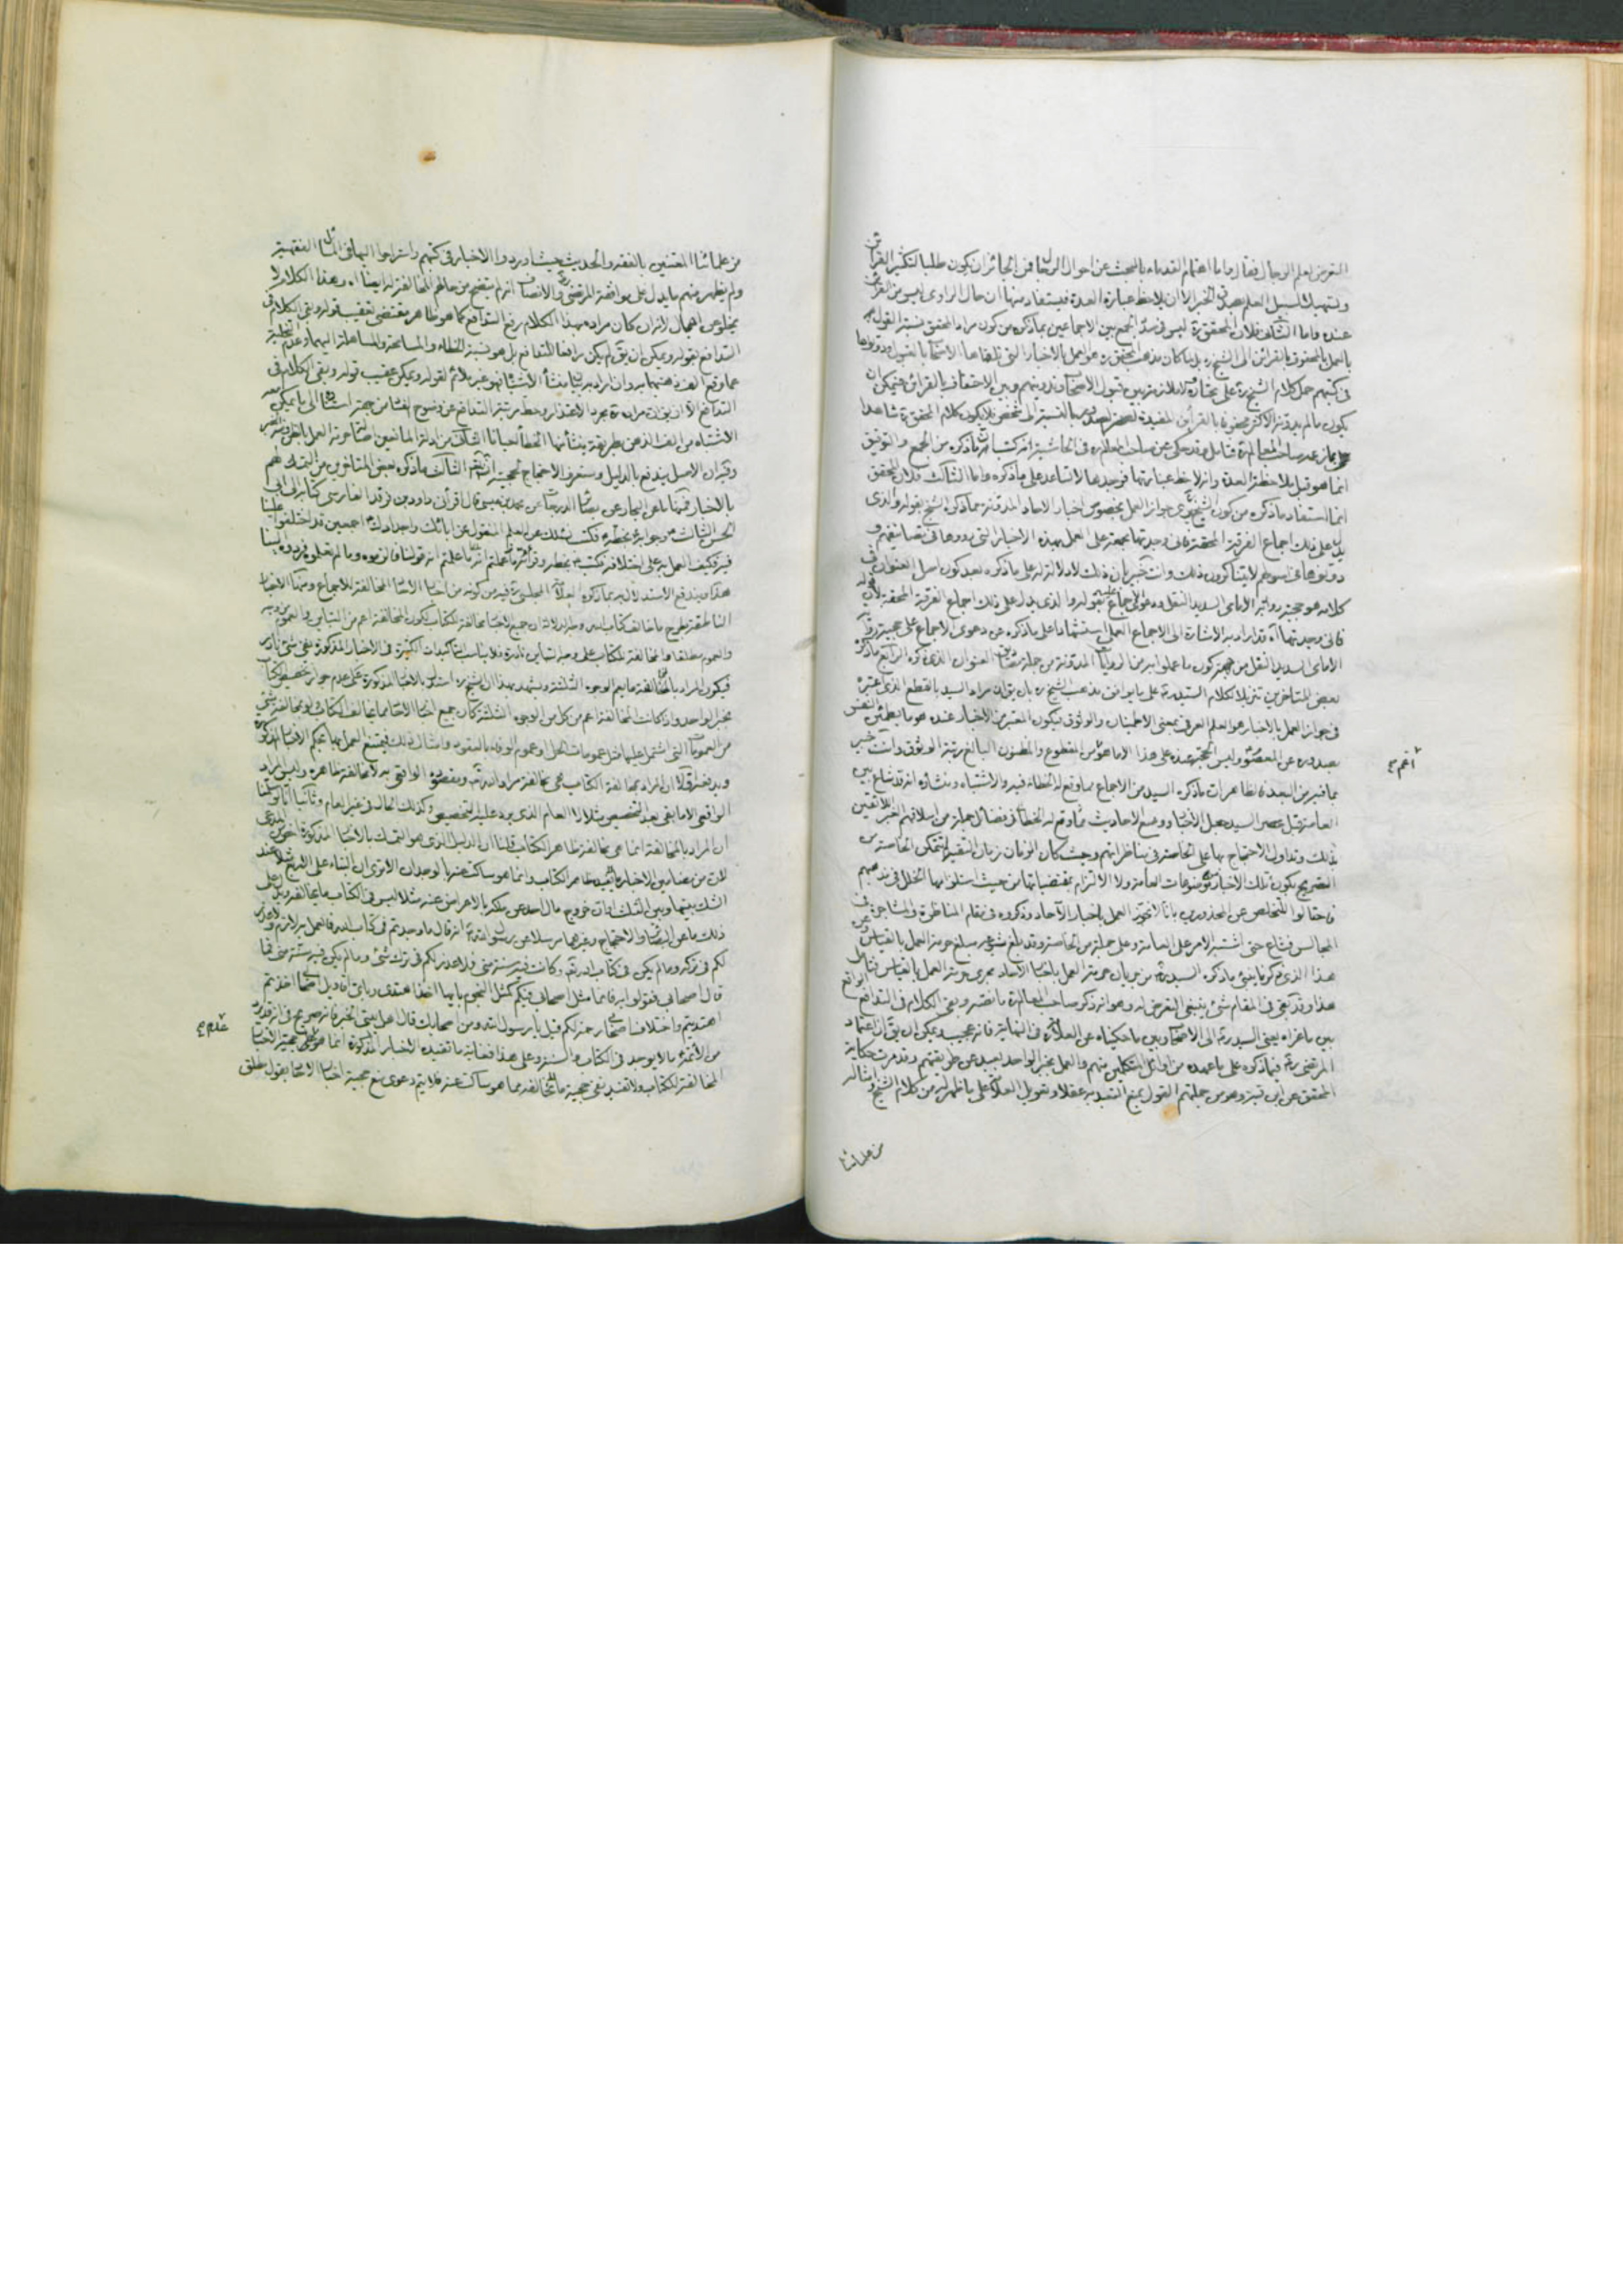 التعرض لعلم الرجال فقال واما اهتمام القدماء بالبحث عن احوال الرجال فمن الجائز ان يكون طلبا لتكثير القرائن
وتسهيلا لسبيل العلم بصدق الخبر الا ان يلاحظ عبارة العدة فيستفاد منها ان حال الراوى ليس من القرائن
عنده واما الثالث فلان المحقق ره ليس فى صدد الجمع بين الاجماعين بما ذكره من كون مراد المحقق نسبة القول
بالعمل بالمحفوف بالقرائن الى الشيخ ره بل لما كان مذهب المحقق ره هو العمل بالاخبار التى تلقاها الاصحاب بالقبول ودونوها
فى كتبهم حمل كلام الشيخ ره على مختاره ولا ملازمة بين قبول الاصحاب وتدوينهم وبين الاحتفاف بالقرائن فيمكن ان
يكون ما لم يدونه الاكثر محفوفا بالقرائن المفيدة بالنسبة الى شخص فلا يكون كلام المحقق ره شاهدا
صاحب المعالم ره فتأمل وقد حكى عن صاحب المعالم ره فى الحاشية انه كتب ما ذكره من الجمع والتوفيق
انما هو قبل ملاحظة العدة وانه لاحظ عبارتها فوجدها لا تساعد على ما ذكره واما الثالث فلان المحقق
انما استفاد ما ذكره من كون الشيخ يدعى جواز العمل بخصوص اخبار الاحاد المدونة مما ذكره الشيخ بقوله والذى
يدل على ذلك اجماع الفرقة المحقة فانى وجدتها مجتمعة على العمل بهذه الاخبار التى رووها فى تصانيفهم و
دونوها فى اصولهم لا يتناكرون ذلك وانت خبير بان ذلك لا دلالة له على ما ذكره بعد كون اصل العنوان فى
كلامه هو حجية رواية الامامى السديد النقل ودعوى الاجماع عليه بقوله والذى يدل على ذلك اجماع الفرقة المحقة لان قوله
فانى وجدتها آه قد اراد به الاشارة الى الاجماع العملى استشهادا على ما ذكره من دعوى الاجماع على حجية رواية
الامامى السديد النقل من جهة كون ما عملوا به من الروايات المدونة من جملة مصاديق العنوان الذى ذكره الرابع ما ذكره
بعض المتاخرين تنزيلا لكلام السيد ره على ما يوافق مذهب الشيخ ره بان يق ان مراد السيد بالقطع الذى اعتبره
فى جواز العمل بالاخبار هو العلم العرفى بمعنى الاطمينان والوثوق فيكون المعتبر من الاخبار عنده هو ما يطمئن النفس
بصدوره عن المعصوم وليس الحجة عنده على هذا الا ما هو اعم من المقطوع والمظنون البالغ مرتبة الوثوق وانت خبير
بما فيه من البعد فالظاهر ان ما ذكره السيد من الاجماع مما وقع له الخطاء فيه والاشتباه ومنشاؤه انه قد شاع بين
العامة قبل عصر السيد جعل الاخبار ووضع الاحاديث مما وقع له الخطاء فى فضائل جملة من اسلافهم الغير اللائقين
بذلك وتداول الاحتجاج بها على الخاصة فى مناظراتهم وحيث كان الزمان زمان التقية لم يتمكن الخاصة من
التصريح بكون تلك الاخبار من موضوعات العامة ولا الالتزام بمقتضياتها من حيث استلزامها الخلل فى مذهبهم
فاحتالوا للتخلص عن المحذورين بانا لا نجوز العمل باخبار الآحاد وذكروه فى مقام المناظرة فى المشاجرة فى
المجالس فشاع حتى اشتبه الامر على العامة وعلى جملة من الخاصة وقد بلغ شيوعه مبلغ حرمة العمل بالقياس
هذا الذى ذكرنا ينبئ ما ذكره السيد ره من جريان حرمة العمل باخبار الآحاد مجرى حرمة العمل بالقياس فتامل
هذا وقد بقى فى المقام شئ ينبغى التعرض له وهو انه ذكر صاحب المعالم ره ما نصه وبقى الكلام فى التدافع الواقع
بين ما عزاه يعنى السيد ره الى الاصحاب وبين ما حكيناه عن العلامة فى النهاية فانه عجيب ويمكن ان يق ان اعتماد
المرتضى ره فيما ذكره على ما عهده من اوائل المتكلمين منهم والعمل بخبر الواحد بعيد عن طريقتهم وقد مرت حكاية
المحقق عن ابن قبة وهو من جملتهم القول بمنع التعبد به عقلا وتعويل العلامة على ما ظهر له من كلام الشيخ وامثاله
من علمائنا
اعم من
من علمائنا المعتنين بالفقه والحديث حيث اوردوا الاخبار فى كتبهم واستراحوا اليها فى المسائل الفقهية
ولم يظهر منهم ما يدل على موافقة المرتضى ره والانصاف انه لم يتضح من حالهم المخالفة له ايضا اه وهذا الكلام لا
يخلو عن اجمال لانه ان كان مراده بهذا الكلام رفع التدافع كما هو ظاهر مقتضى تعقيب قوله وبقى الكلام فى
التدافع بقوله ويمكن ان يق لم يكن رافعا للتدافع بل هو نسبة الخطاء والمسامحة والمساهلة اليهما وعدم
عما وقع الغفلة منهما به وان اراد به بيان منشأ الاشتباه فهو غير ملائم لقوله ويمكن عقيب قوله وبقى الكلام فى
التدافع الا ان يق ان مراده مجرد الاعتذار وحط مرتبة التدافع عن وضوح الفساد من جهة استناده الى ما يمكن معه
الاشتباه من الغفلة عن طريقة منشأها الخطأ احيانا الثالث من ادلة المانعين اصالة حرمة العمل بالظن
وفيه ان الاصل يندفع بالدليل وستعرف الاحتجاج لحجيته ان شاء الله الثالث ما ذكره بعض المتاخرين من التمسك لهم
بالاخبار فمنها ما عن البحار عن بصائر الدرجات عن محمد بن عيسى قال اقرأنى داود بن فرقد الفارسى كتابه الى ابى
الحسن الثالث ع وجوابه ع بخطه فكتب نسئلك عن العلم المنقول عن ابائك واجدادك ع اجمعين قد اختلفوا علينا
فيه فكيف العمل به على اختلافه فكتب ع بخطه وقراته ما علمتم انه قولنا فالزموه وما لم تعلموه فردوه الينا
هذا ويندفع الاستدلال به بما ذكره العلامة المجلسى ره فيه من كونه من اخبار الاحاد المخالفة للاجماع ومنها الاخبار
الناطقة بطرح ما خالف كتاب الله وجه الدلالة ان جميع الاخبار مخالفة للكتاب لكون المخالفة اعم من التباين والعموم من وجه
والعموم مطلقا والمخالفة للكتاب على وجه التباين نادرة فلا يناسب التأكيدات الكثيرة فى الاخبار المذكورة نفى شئ نادر
فيكون المراد بالمخالفة ما يعم الوجوه الثلثة ويشهد بهذا ان الشيخ ره استدل بالاخبار المذكورة على عدم جواز تخصيص الكتاب
بخبر الواحد واذا كانت المخالفة اعم من كل من الوجوه الثلثة كان جميع اخبار الاحاد مما يخالف الكتاب لمخالفة شئ
من العمومات التى اشتمل عليها مثل عمومات الحل وعموم الوفاء بالعقود وامثال ذلك فيمتنع العمل بها بحكم الاخبار المذكورة
ويدفعه اولا ان المراد بمخالفة الكتاب هى مخالفة مراد الله تعه ومقصوده الواقعى به لا مخالفة ظاهره وليس المراد
الواقعى الا ما بقى بعد التخصيص مثلا لا العام الذى يرد عليه التخصيص وكذلك الحال فى غير العام وثانيا انا لو سلمنا
ان المراد بالمخالفة انما هى مخالفة ظاهر الكتاب قلنا ان الدليل الذى هو التمسك بالاخبار المذكورة اخص من المدعى
لان من مضامين الاخبار ما لا يفيده ظاهر الكتاب وانما هو ساكت عنها بالوجدان الا ترى ان البناء على الاربع مثلا عند
الشك بينها وبين الثلث او ان خروج مال احد عن ملكه بالاعراض عنه مثلا ليس فى الكتاب ما يخالفه ويدل على
ذلك ما عن البصائر والاحتجاج وغيرهما مرسلا عن رسول الله ص انه قال ما وجدتم فى كتاب الله فالعمل به لازم ولا عذر
لكم فى تركه وما لم يكن فى كتاب الله تعه وكانت فيه سنة منى فلا عذر لكم فى ترك شئ وما لم يكن فيه سنة منى فما
قال اصحابى فقولوا به فانما مثل اصحابى فيكم كمثل النجوم بايها اخذ اهتدى وباى اقاويل اصحابى اخذتم
اهتديتم واختلاف اصحابى رحمة لكم قيل يا رسول الله ومن اصحابك قال اهل بيتى الخبر فانه صريح فى انه قد يرد
من الائمة ع ما لا يوجد فى الكتاب والسنة وعلى هذا فغاية ما تفيده الاخبار المذكورة انما هو عدم حجية الاخبار
المخالفة للكتاب ولا تفيد نفى حجية ما لا يخالفه مما هو ساكت عنه فلا يتم دعوى منع حجية اخبار الاحاد بقول مطلق
عدم